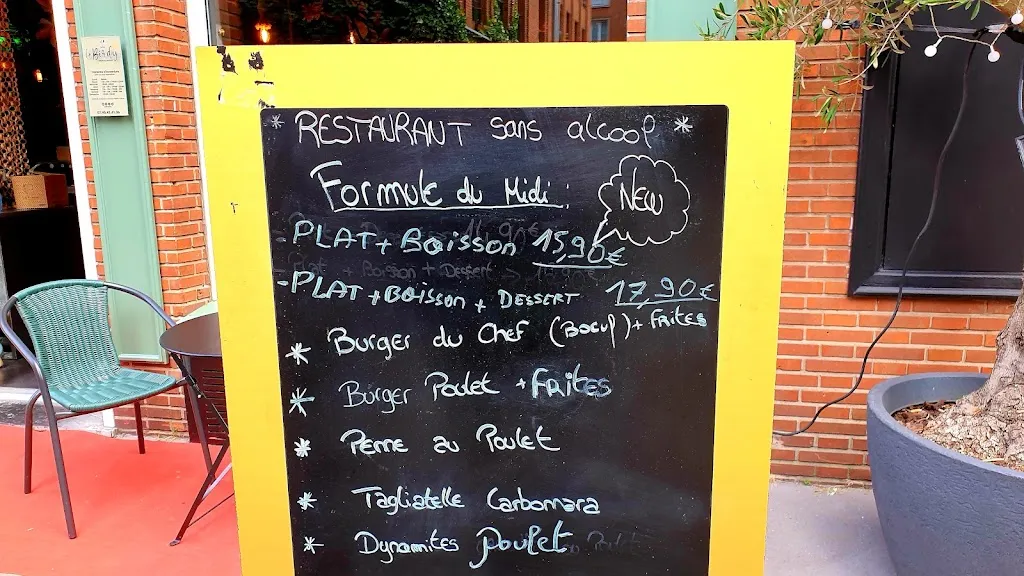 * RESTAURANT sans alcool *
Formule du Midi :
NEW
- PLAT + Boisson 15,90€
- PLAT + BOISSON + DESSERT 17,90€
* Burger du Chef (Boeuf) + FRites
* Burger Poulet + FRites
* Penne au Poulet
* Tagliatelle Carbonara
* Dynamites poulet